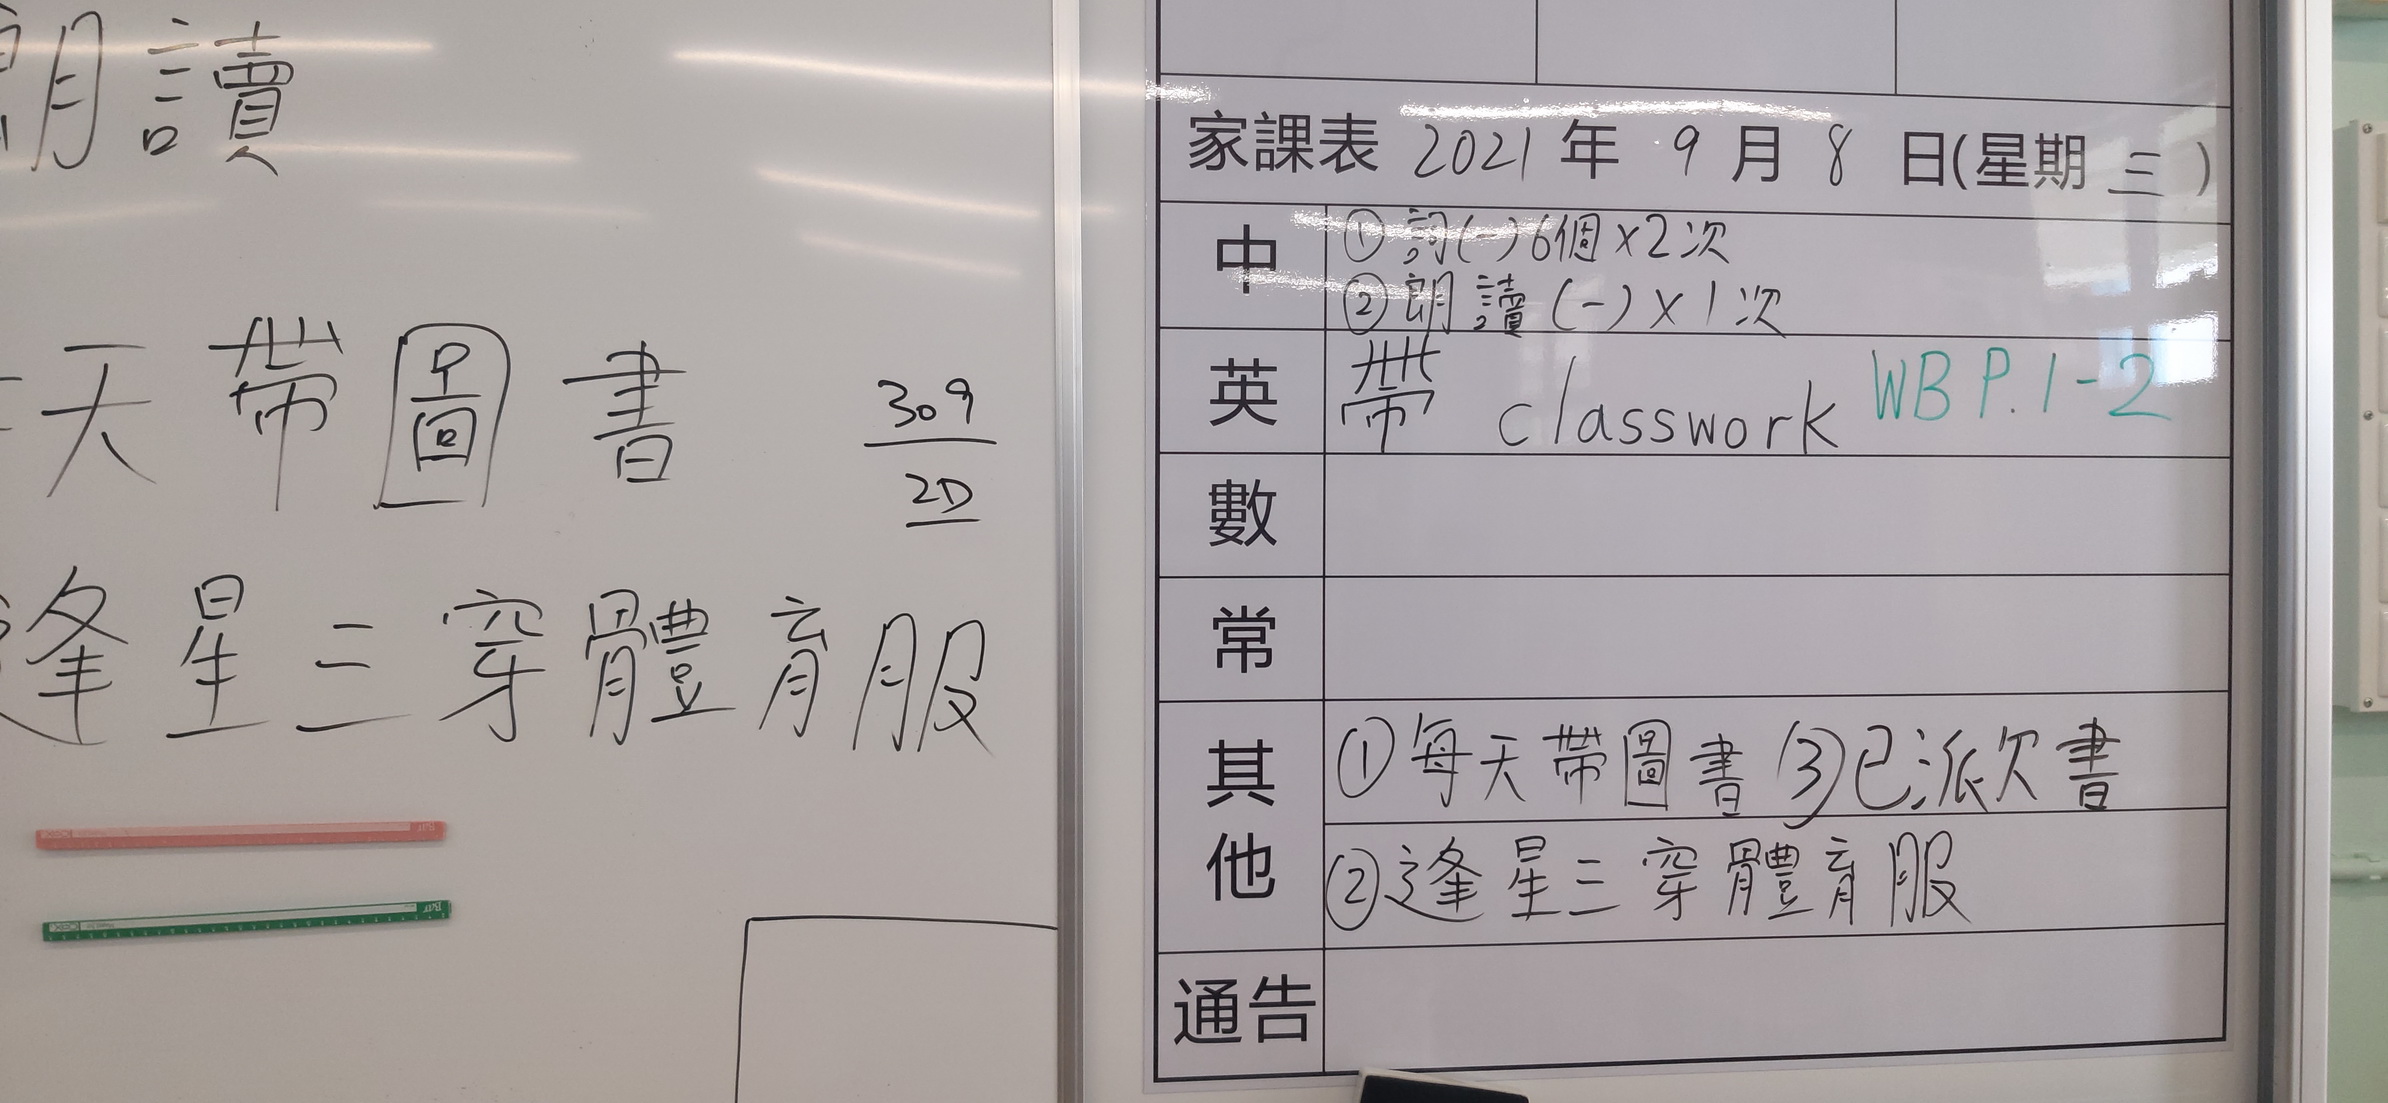 朗讀
天帶圖書
309
2D
逢星三穿體育服
家課表 2021 年 9 月 8 日(星期 三 )
中
① 詞(一)6個×2次
② 朗讀(一)×1次
英
帶 classwork WB P.1-2
數
常
其他
① 每天帶圖書 ③ 已派欠書
② 逢星三穿體育服
通告